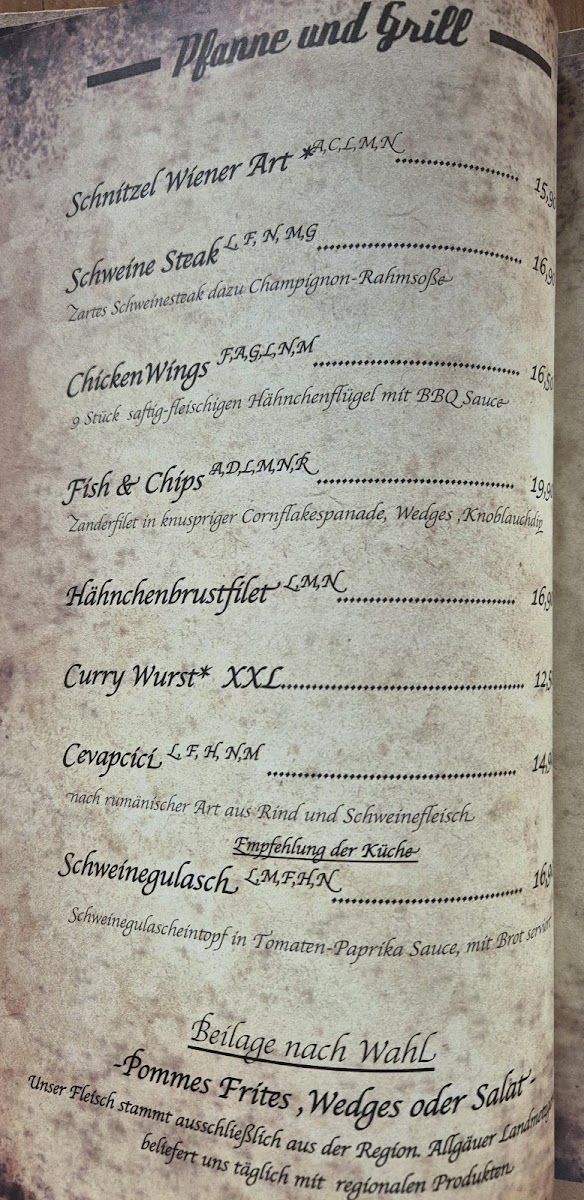 Pfanne und Grill
Schnitzel Wiener Art *A,C,L,M,N 15,90
Schweine Steak L, F, N, M,G 16,90
Zartes Schweinesteak dazu Champignon-Rahmsoße
ChickenWings F,A,G,L,N,M 16,50
9 Stück saftig-fleischigen Hähnchenflügel mit BBQ Sauce
Fish & Chips A,D,L,M,N,R 19,90
Zanderfilet in knuspriger Cornflakespanade, Wedges ,Knoblauchdip
Hähnchenbrustfilet L,M,N 16,90
Curry Wurst* XXL 12,5
Cevapcici L, F, H, N,M 14,9
nach rumänischer Art aus Rind und Schweinefleisch
Empfehlung der Küche
Schweinegulasch L,M,F,H,N 16,9
Schweinegulascheintopf in Tomaten-Paprika Sauce, mit Brot serviert
Beilage nach Wahl
-Pommes Frites ,Wedges oder Salat-
Unser Fleisch stammt ausschließlich aus der Region. Allgäuer
beliefert uns täglich mit regionalen Produkten